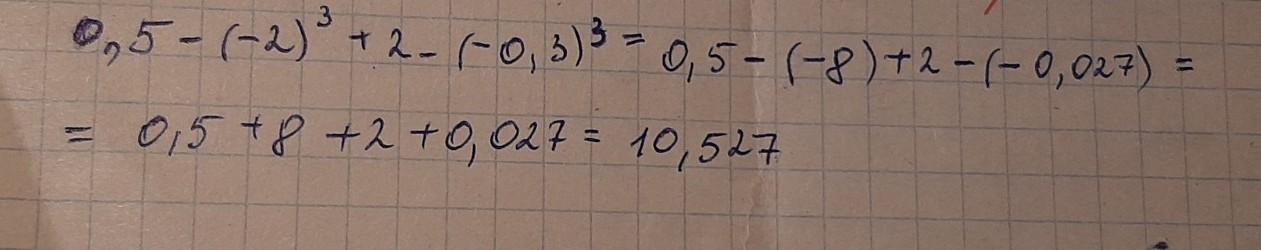 0,5 - (-2)³ + 2 - (-0,3)³ = 0,5 - (-8) + 2 - (-0,027) =
= 0,5 + 8 + 2 + 0,027 = 10,527